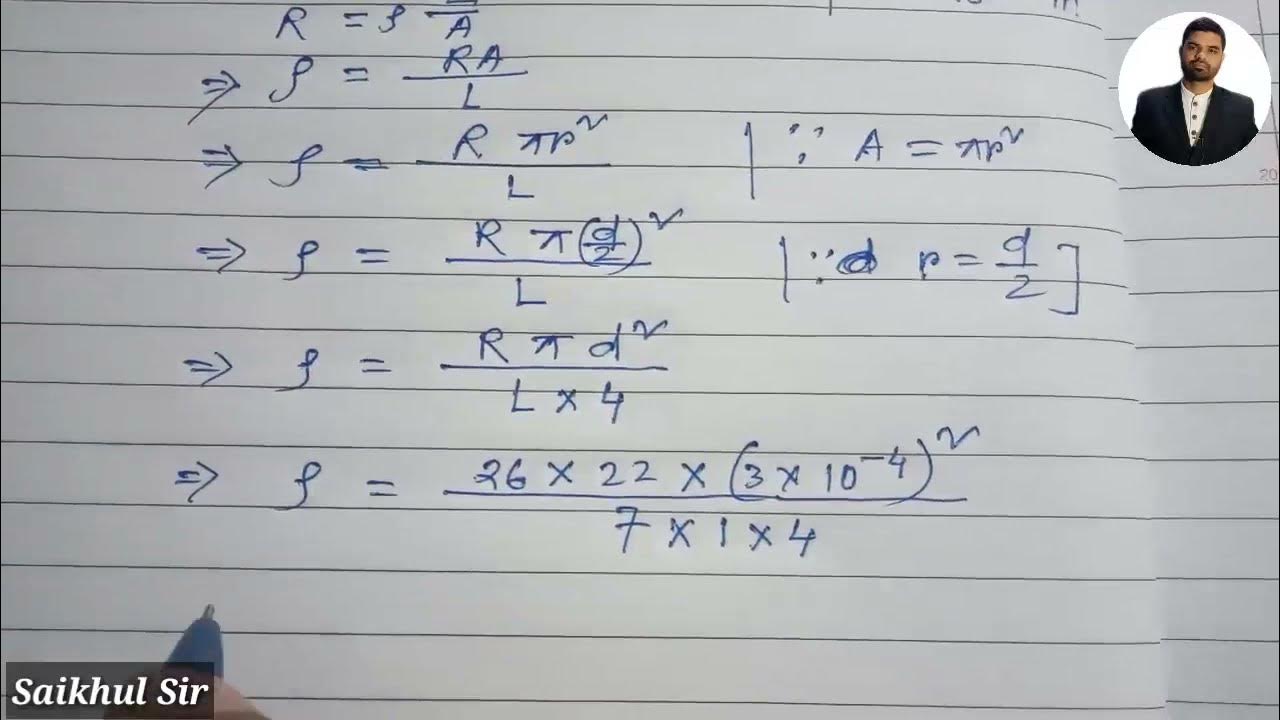 R = ρ L/A
⇒ ρ = RA/L
⇒ ρ = R πr²/L | ∵ A = πr²
⇒ ρ = R π(d/2)²/L | ∵ r = d/2]
⇒ ρ = R π d²/L × 4
⇒ ρ = 26 × 22 × (3 × 10⁻⁴)²/7 × 1 × 4
Saikhul Sir